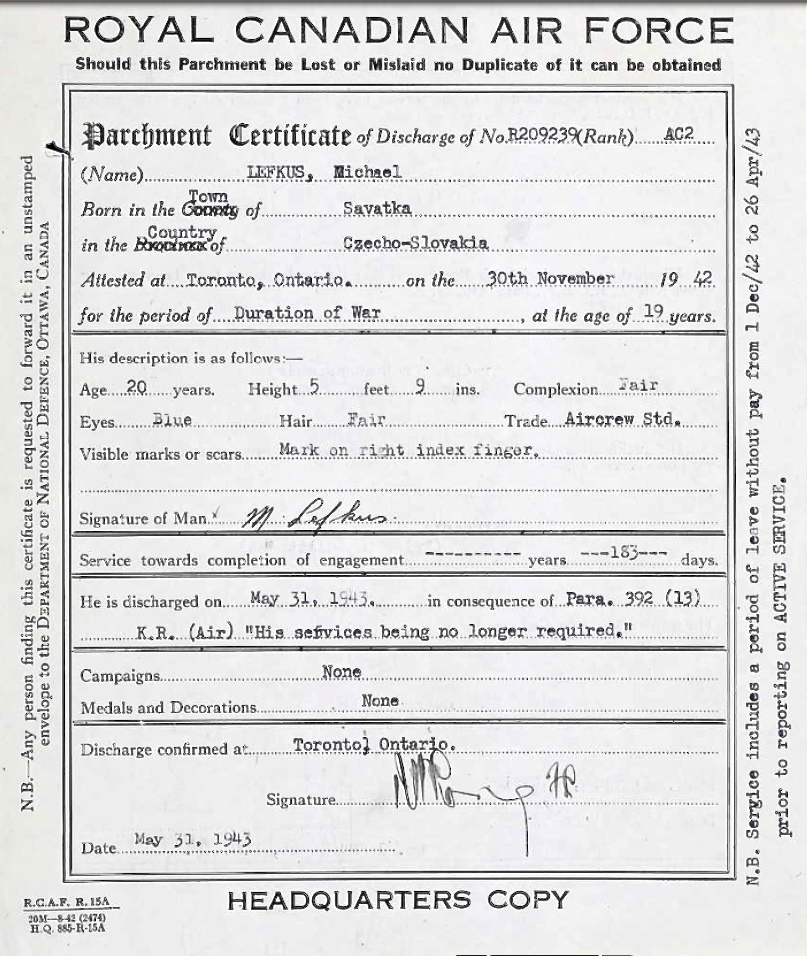 ROYAL CANADIAN AIR FORCE
Should this Parchment be Lost or Mislaid no Duplicate of it can be obtained
Parchment Certificate of Discharge of No. R209239 (Rank) AC2
(Name) LEFKUS, Michael
Town
Born in the County of Savatka
Country
in the Province of Czecho-Slovakia
Attested at Toronto, Ontario. on the 30th November 19 42
for the period of Duration of War, at the age of 19 years.
His description is as follows:—
Age 20 years. Height 5 feet 9 ins. Complexion Fair
Eyes Blue Hair Fair Trade Aircrew Std.
Visible marks or scars Mark on right index finger.
Signature of Man x M. Lefkus.
Service towards completion of engagement ---------- years ---183--- days.
He is discharged on May 31, 1943. in consequence of Para. 392 (13)
K.R. (Air) "His services being no longer required."
Campaigns None
Medals and Decorations None
Discharge confirmed at Toronto, Ontario.
Signature
Date May 31, 1943
HEADQUARTERS COPY
R.C.A.F. R.15A
20M—8-42 (2474)
H.Q. 885-R-15A
N.B.—Any person finding this certificate is requested to forward it in an unstamped
envelope to the DEPARTMENT OF NATIONAL DEFENCE, OTTAWA, CANADA
N.B. Service includes a period of leave without pay from 1 Dec/42 to 26 Apr/43
prior to reporting on ACTIVE SERVICE.